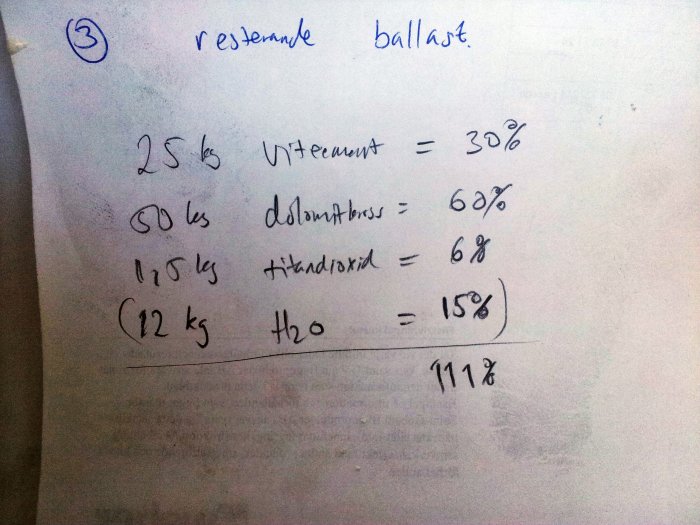 ③ resterande ballast.
25 kg vitcement = 30%
50 kg dolomitkross = 60%
1,5 kg titandioxid = 6%
(12 kg H2O = 15%)
111%